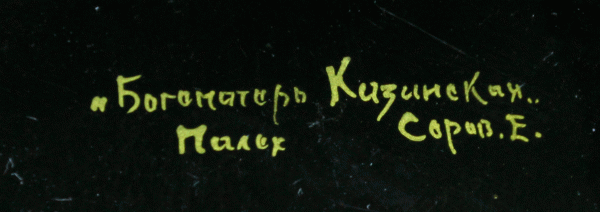 „Богоматерь Казанская"
Палех Серов. Е.